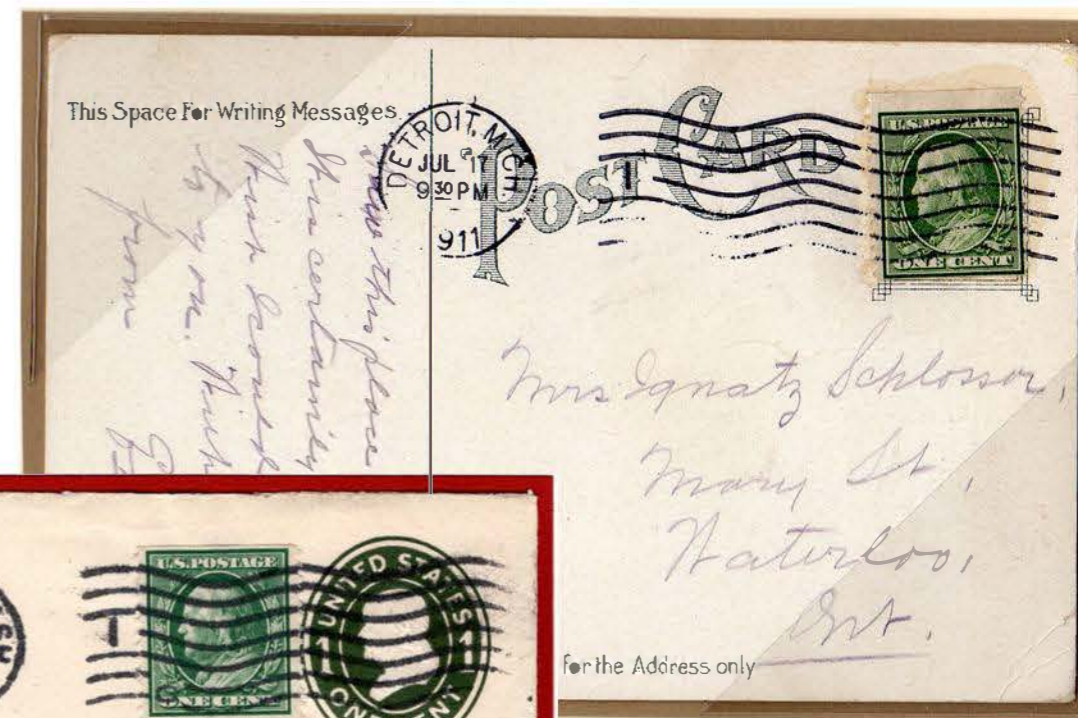 This Space For Writing Messages.
POST CARD
DETROIT, MICH.
JUL 17
9 30 PM
1911
U.S. POSTAGE
ONE CENT
this place
this certainly
think
to you. 
from
Mrs Ignatz Schlosser,
Mary St.,
Waterloo,
Ont.
for the Address only
U.S. POSTAGE
ONE CENT
UNITED STATES
1 1
ONE CENT